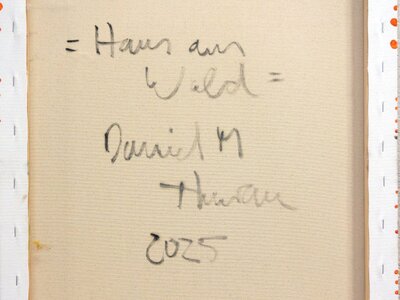 = Haus am
Wald =
Daniel M
Thurau
2025